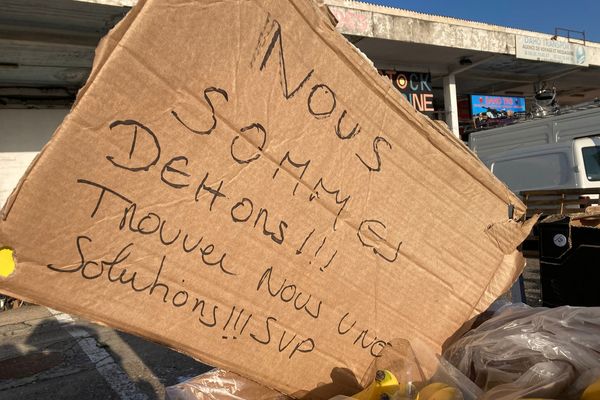 Nous
Sommes
Dehors!!!
Trouver Nous une
Solutions!!! SVP
STOCK